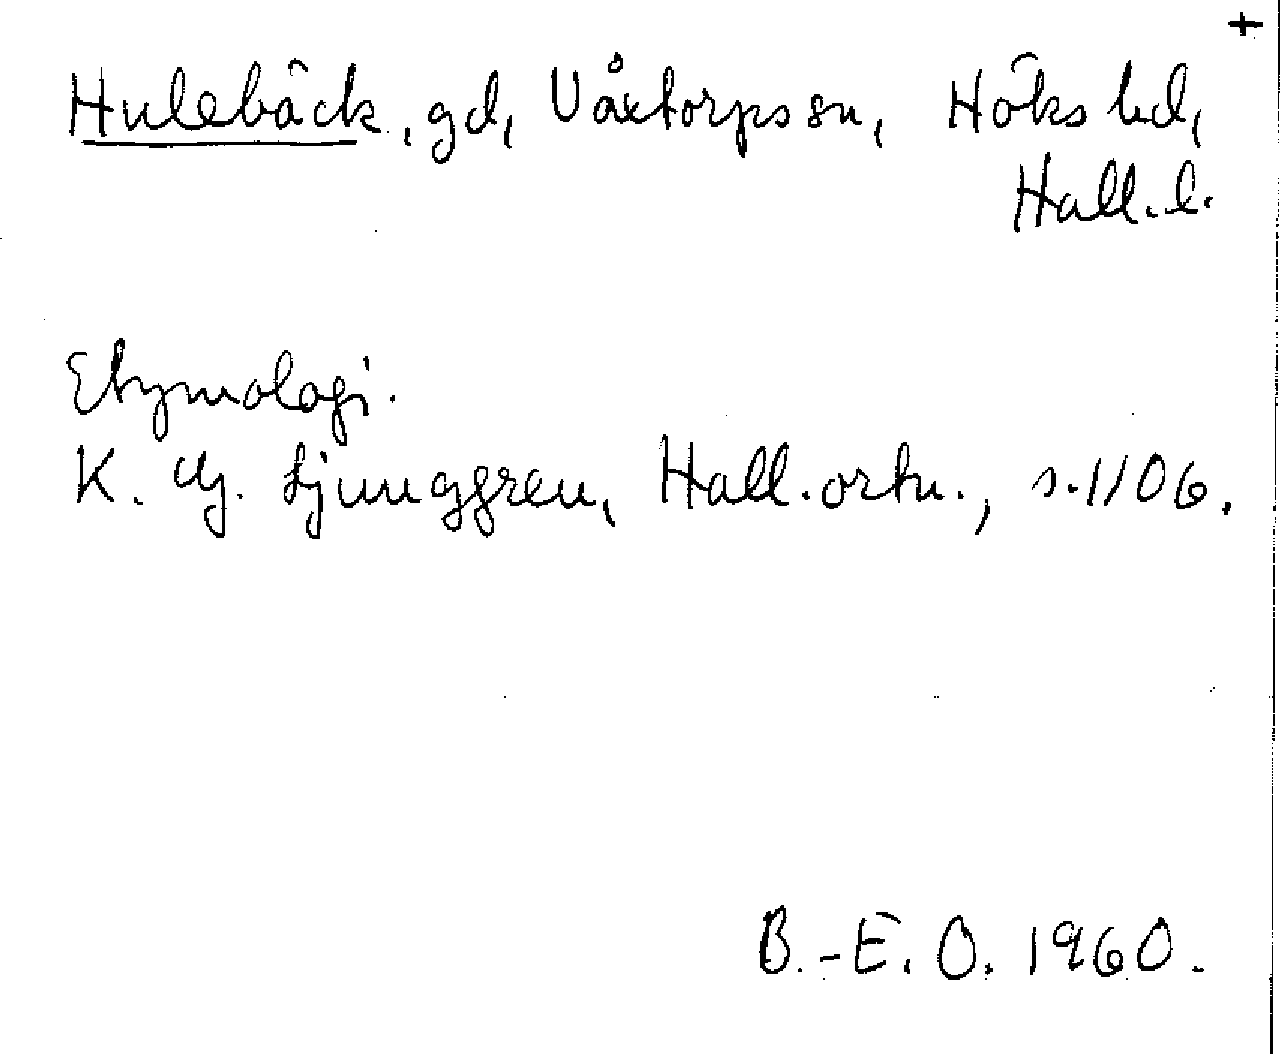 +
Hulebäck, gd, Våxtorps sn, Höks hd,
Hall. l.
Etymologi.
K. G. Ljunggren, Hall. ortn., s. 106.
B.-E. O. 1960.